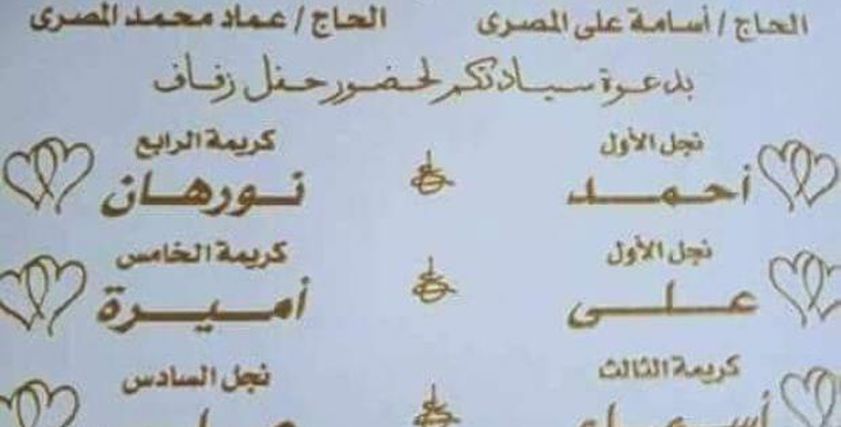 الحاج / أسامة على المصرى الحاج / عماد محمد المصرى
بدعوة سيادتكم لحضور حفل زفاف
نجل الأول كريمة الرابع
أحمد نورهان
نجل الأول كريمة الخامس
على أميرة
كريمة الثالث نجل السادس
أسماء